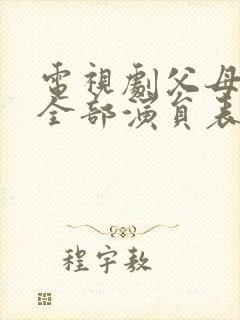 電視劇父母
全部演員表
程宇敖